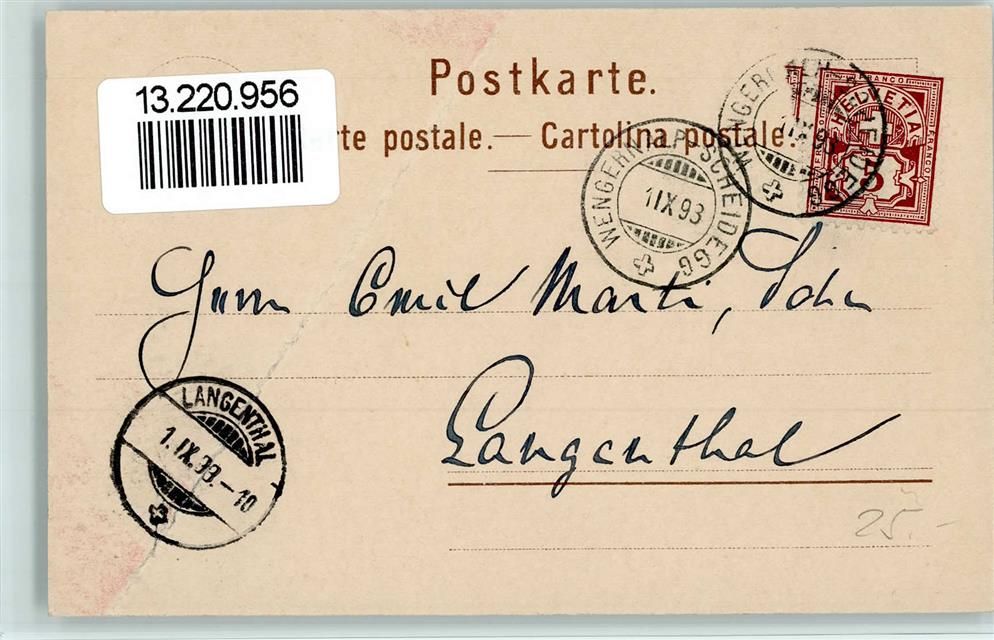 Postkarte.
13.220.956
rte postale. — Cartolina postale.
WENGERNALP-SCHEIDEGG
1 IX 93
FRANCO
HELVETIA
FRANCO
5
Herrn Emil Marti, Sohn
LANGENTHAL
1. IX. 93. – 10
Langenthal
25.-